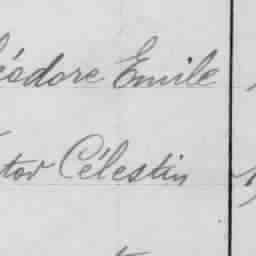 éodore Emile
tor Célestin